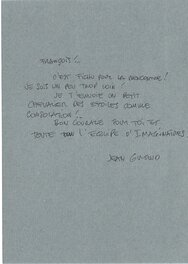 FRANÇOIS!..
C'EST FICHU POUR LA RENCONTRE!
JE SUIS UN PEU TROP LOIN
JE T'ENVOIE UN PETIT
CHEVALIER DES ETOILES COMME
BON COURAGE POUR TOI ET
TOUTE L'EQUIPE D'IMAGINAIRES
JEAN GIRAUD